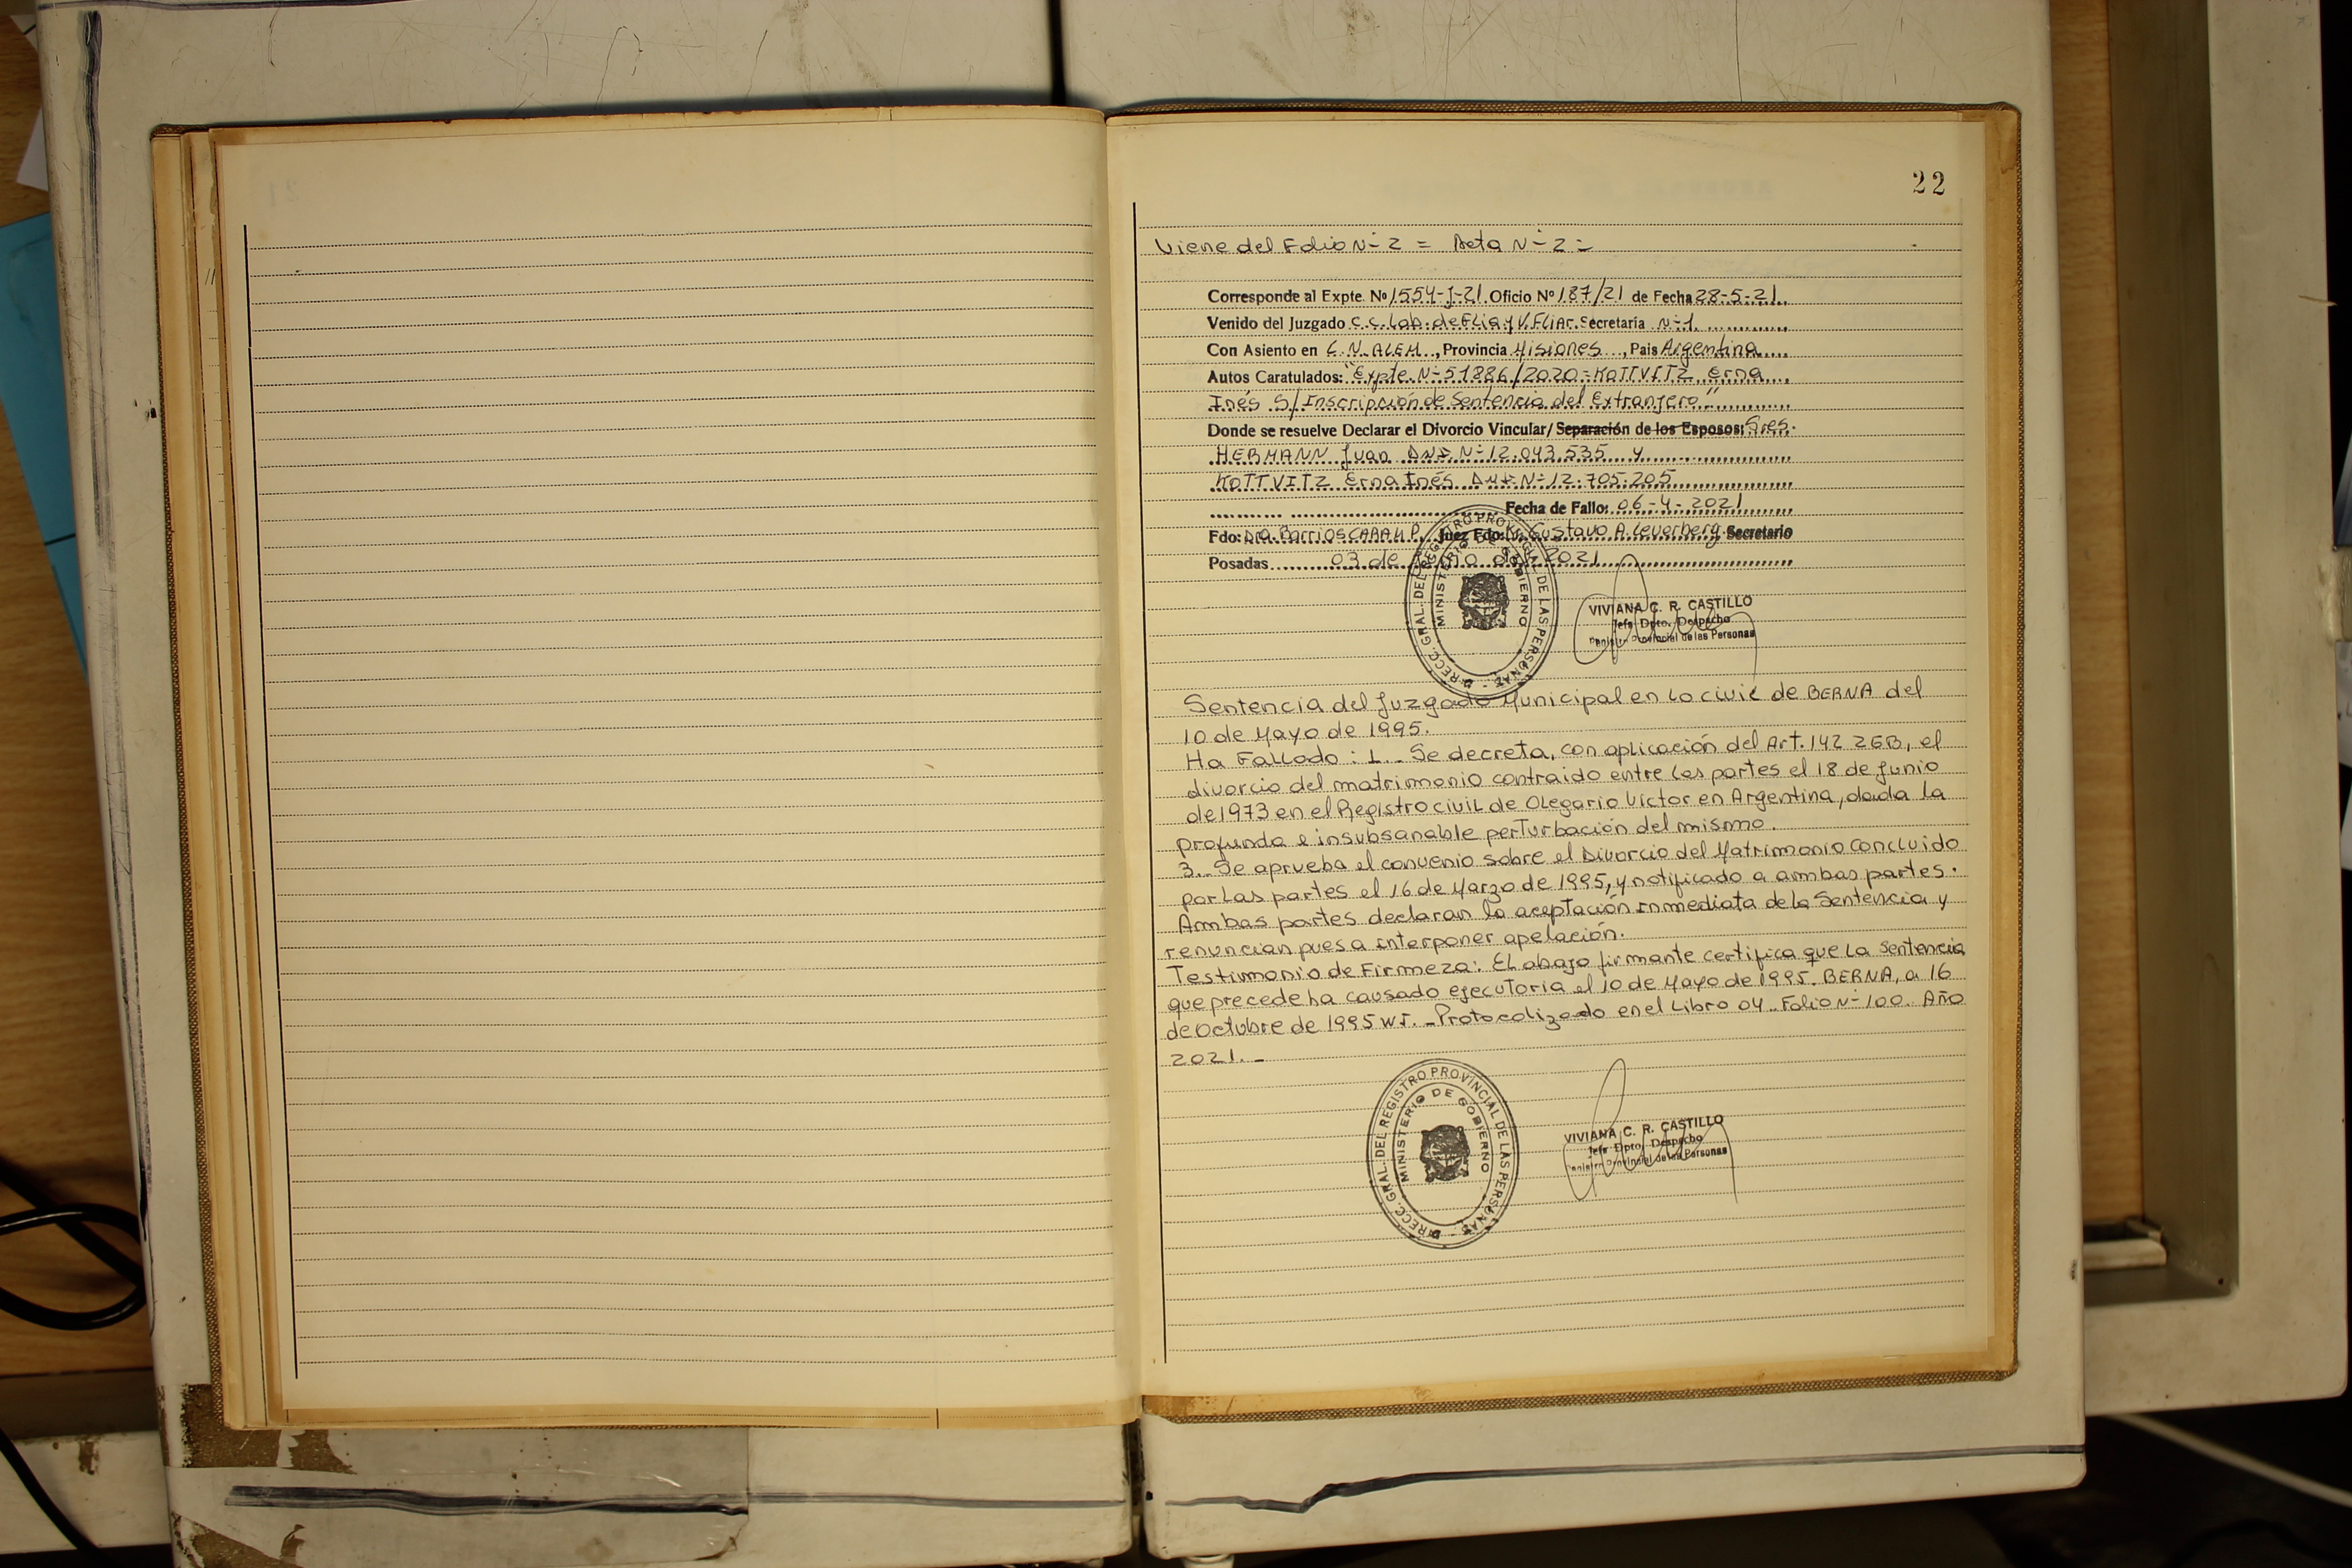 22
Viene del Folio N° 2 = Acta N° 2 =
Corresponde al Expte. Nº 1554-J-21 Oficio Nº 187/21 de Fecha 28-5-21
Venido del Juzgado C.C. Lab. de Flia y V. Fliar. Secretaria N° 1
Con Asiento en L.N. ALEM, Provincia Misiones, Pais Argentina
Autos Caratulados: "Expte. N° 51886/2020 = KOTTVITZ Erna
Inés S/ Inscripción de Sentencia del Extranjero"
Donde se resuelve Declarar el Divorcio Vincular/ Separación de los Esposos: Sres.
HERMANN Juan DNI N° 12.043.535 y
KOTTVITZ Erna Inés DNI N° 12.705.205
Fecha de Fallo: 06-4-2021
Fdo: Dra. Barrios CARAM P. Juez Fdo: Dr. Gustavo A. Leverberg Secretario
Posadas 03 de Junio del 2021
DIRECC. GRAL. DEL REGISTRO PROVINCIAL DE LAS PERSONAS
MINISTERIO DE GOBIERNO
VIVIANA C. R. CASTILLO
Jefe Dpto. Despacho
Registro Provincial de las Personas
Sentencia del Juzgado Municipal en lo civil de BERNA del
10 de Mayo de 1995.
Ha Fallado : 1.. Se decreta, con aplicación del Art. 142 ZGB, el
divorcio del matrimonio contraido entre las partes el 18 de Junio
de 1973 en el Registro civil de Olegario Víctor en Argentina, dada la
profunda e insubsanable perturbación del mismo.
3.. Se aprueba el convenio sobre el Divorcio del Matrimonio concluido
por las partes el 16 de Marzo de 1995, y notificado a ambas partes.
Ambas partes declaran la aceptación inmediata de la Sentencia y
renuncian pues a interponer apelación.
Testimonio de Firmeza: El abajo firmante certifica que la sentencia
que precede ha causado ejecutoria el 10 de Mayo de 1995. BERNA, a 16
de Octubre de 1995 W.J. _ Protocolizado en el Libro 04.. Folio N° 100. Año
2021. _
DIRECC. GRAL. DEL REGISTRO PROVINCIAL DE LAS PERSONAS
MINISTERIO DE GOBIERNO
VIVIANA C. R. CASTILLO
Jefe Dpto. Despacho
Registro Provincial de las Personas